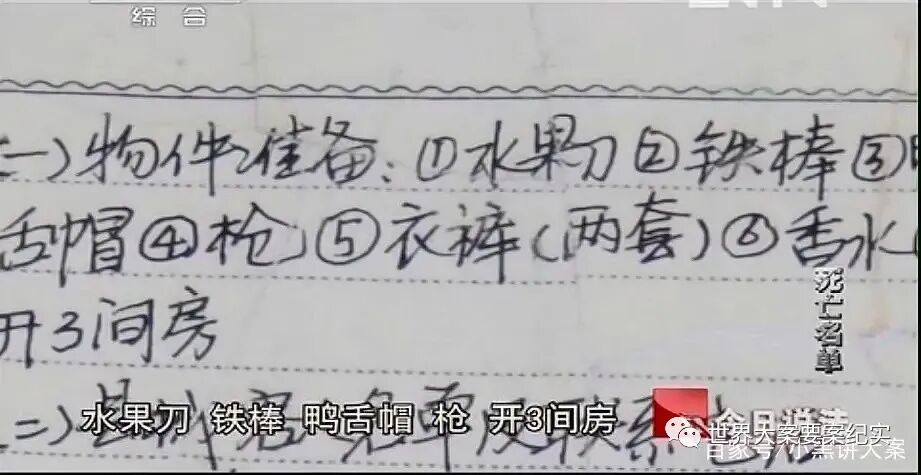 综合
(一)物件准备:①水果刀②铁棒③
舌帽④枪⑤衣裤(两套)⑥香水
开3间房
死亡名单
(二)
名单及联系
水果刀 铁棒 鸭舌帽 枪 开3间房
今日说法
世界大案要案纪实
百家号/小黑讲大案